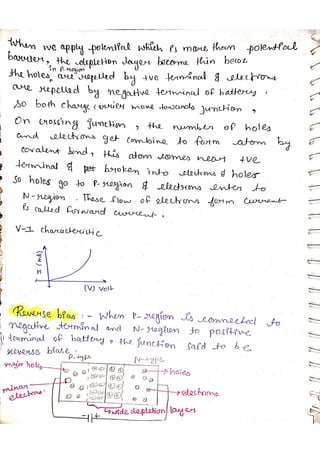 When we apply potential which is more than potential
barrier, the depletion layer become thin becoz
in P-region
the holes are repelled by +ve terminal & electrons
are repelled by negative terminal of battery.
so both charge carrier move towards junction,
On crossing junction, the number of holes
and electrons get combine to form atom by
covalent bond, this atom comes near +ve
terminal & broken into electrons & holes
so holes go to P-region & electrons enter to
N-region. These flow of electrons form current
is called forward current.
V-I characteristic
(mA)
(V) Volt
Reverse bias :- When P-region is connected to
negative terminal and N-region to positive
terminal of battery, the junction said to be
reverse biase.
P-type N-type
major hole holes
minor
electrons electrons
wide depletion layer